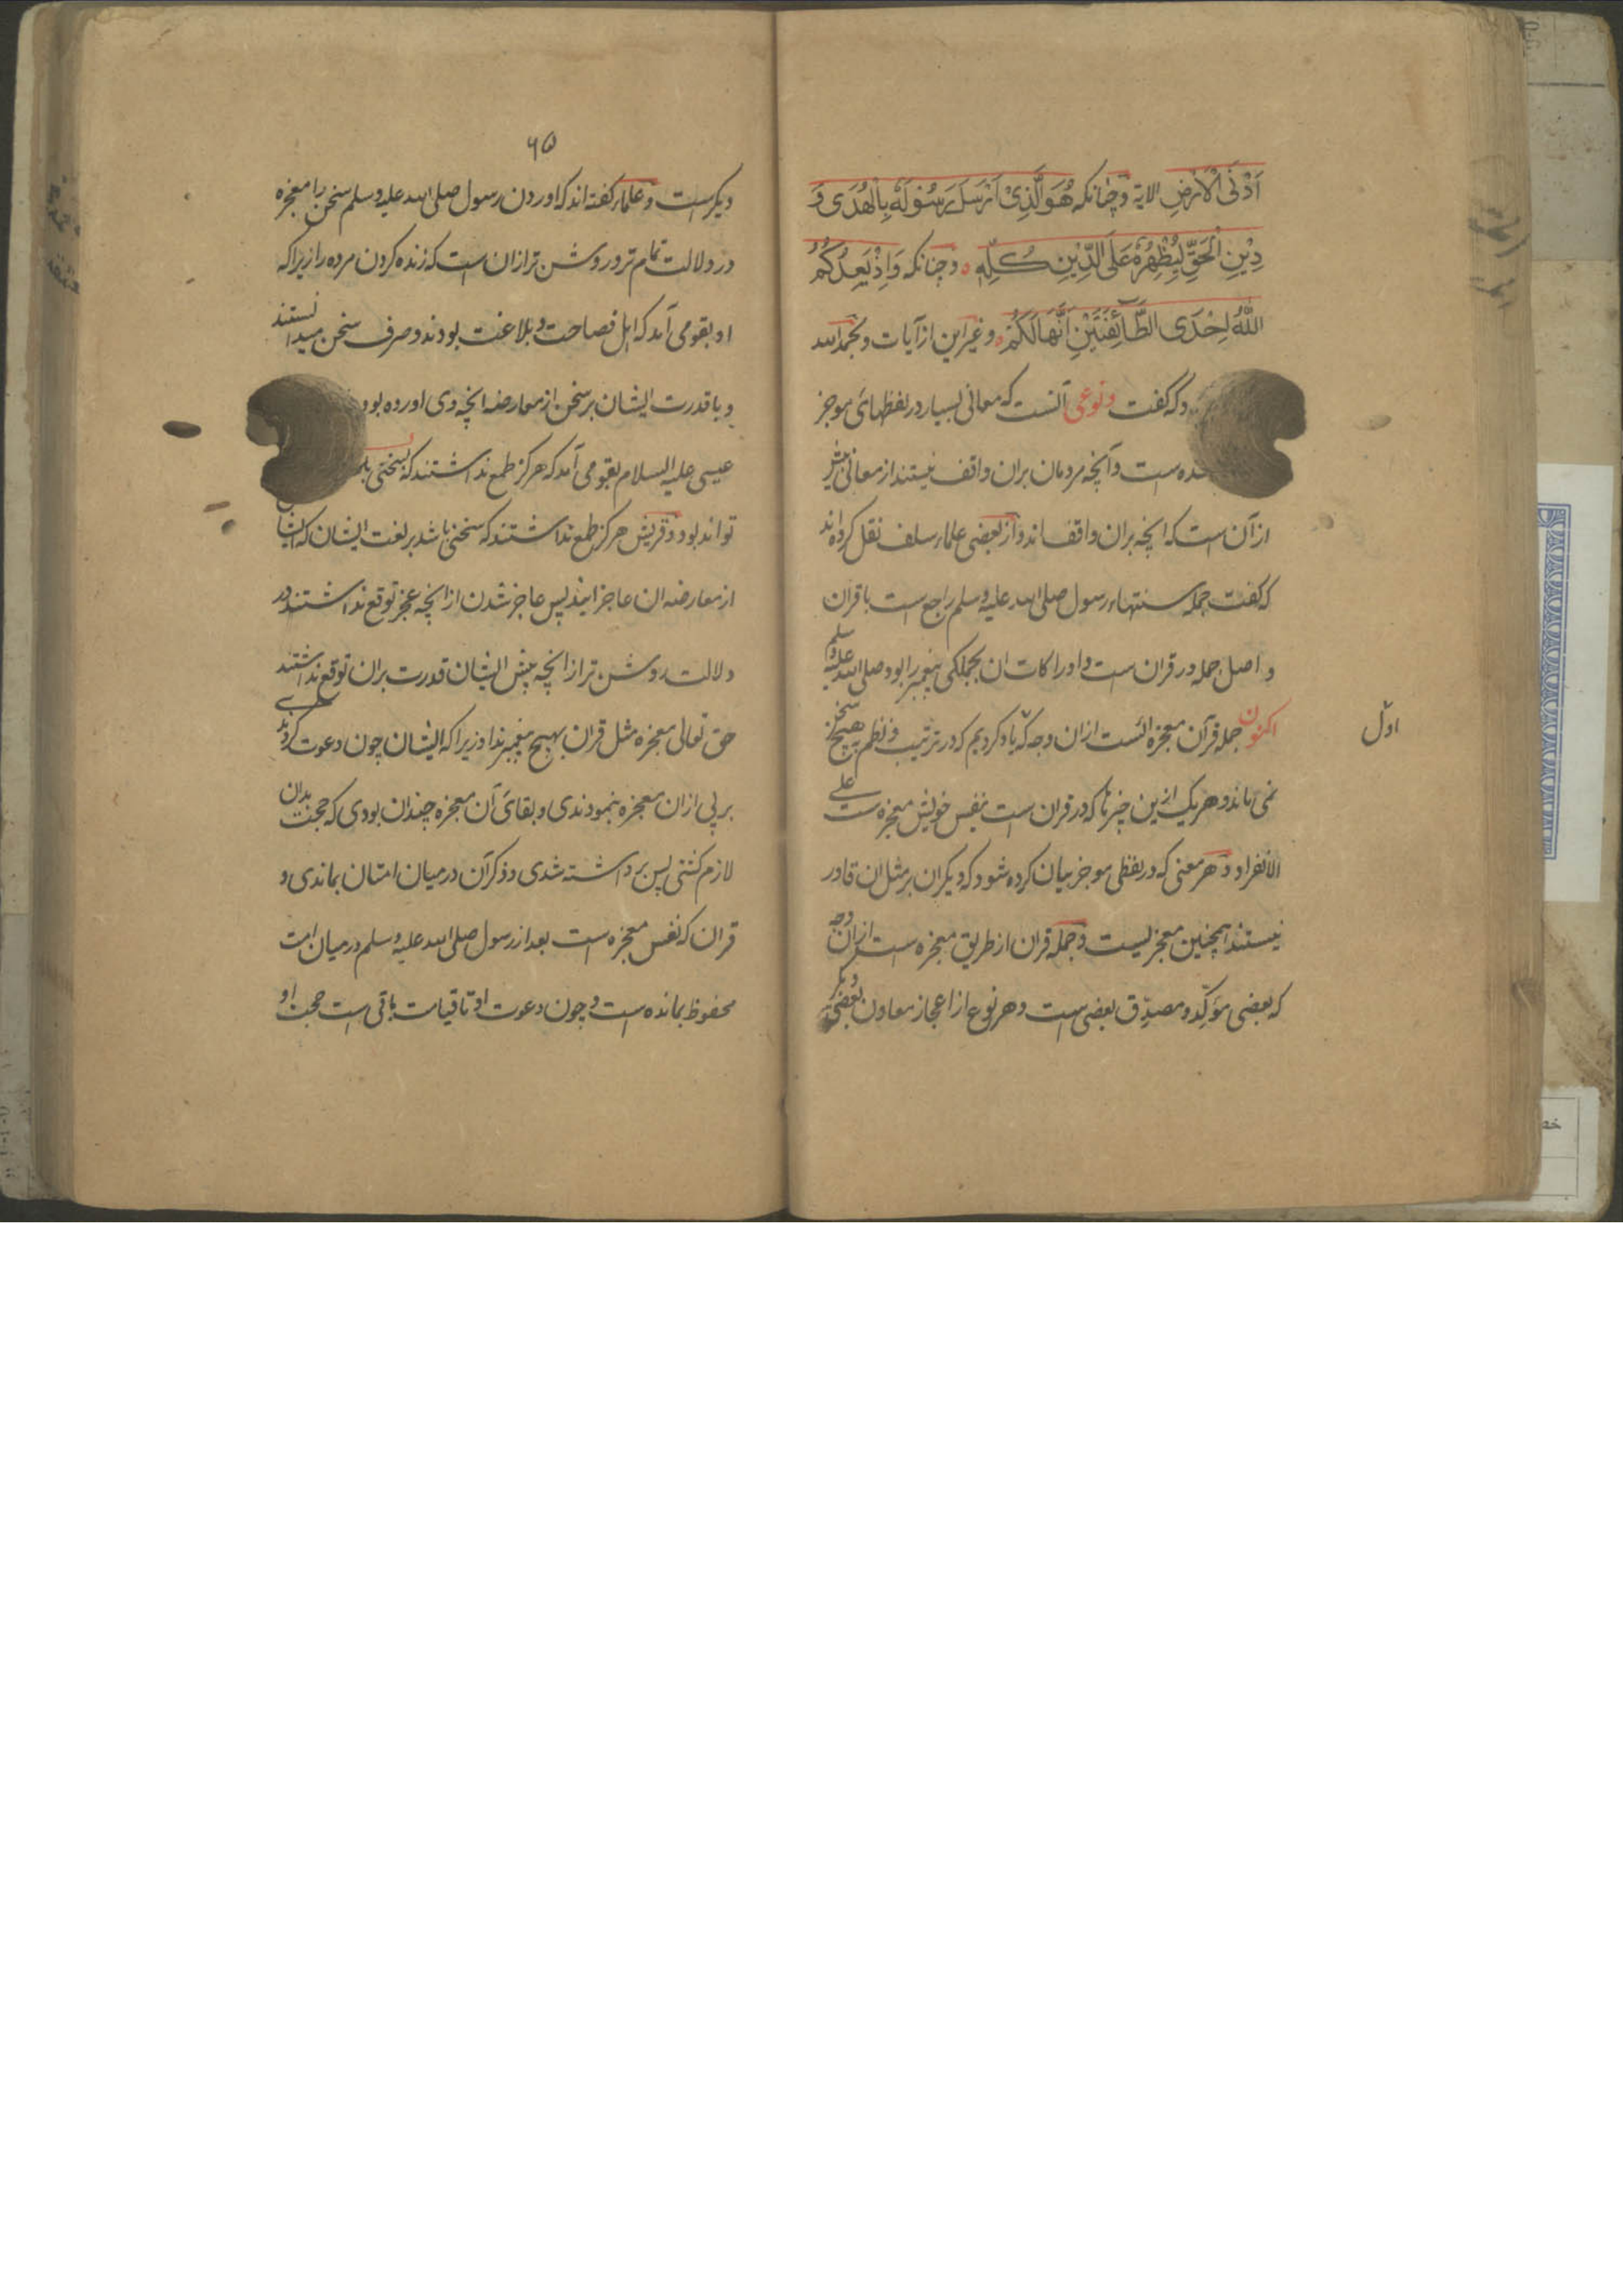 اَدْنَی الْاَرْضِ الایة و چنانکه هُوَ الَّذِیْ اَرْسَلَ رَسُوْلَهٗ بِالْهُدٰی وَ
دِیْنِ الْحَقِّ لِیُظْهِرَهٗ عَلَی الدِّیْنِ کُلِّهٖ و چنانکه وَاِذْ یَعِدُکُمُ
اللّٰهُ اِحْدَی الطَّآئِفَتَیْنِ اَنَّهَا لَکُمْ و غیر این از آیات و بحمد الله
که گفت و نوعی آنست که معانی بسیار در لفظهائ موجز
ست و آنچه مردمان بران واقف نیستند از معانی بیش
از آن است که انچه بران واقف اند و از بعضی علماء سلف نقل کرده اند
که گفت جمله سنتهاء رسول صلی الله علیه و سلم راجع است با قران
و اصل جمله در قران ست و ادراکات ان بجملکی پیغمبر را بود صلی الله علیه و سلم
اکنون جمله قرآن معجزه است ازان وجه که یاد کردیم که در ترتیب و نظم بهیچ سخن
اوّل
نمی ماند و هر یک ازین چیزها که در قران است بنفس خویش معجزه ست علی
الانفراد و هر معنی که در لفظی موجز بیان کرده شود که دیکران بر مثل ان قادر
نیستند همچنین معجز یست و جمله قران از طریق معجزه است ازان وجه
که بعضی مؤکّد و مصدّق بعضی ست و هر نوع از اعجاز معاون بعضی دیکر
۶۵
دیکر است و علماء کفته اند که اوردن رسول صلی الله علیه و سلم سخن را معجزه
در دلالت تمام تر و روشن تر ازان است که زنده کردن مرده را زیرا که
او بقومی آمد که اهل فصاحت و بلاغت بودند و صرف سخن میدانستند
و با قدرت ایشان بر سخن از معارضه انچه وی اورده بود
عیسی علیه السلام بقومی آمد که هرکز طمع نداشتند که
تواند بود و قریش هرکز طمع نداشتند که سخنی باشد بر لغت ایشان که ایشان
از معارضه ان عاجز ایند پس عاجز شدن از انچه عجز توقع نداشتند در
دلالت روشن تر از انچه پیش ایشان قدرت بران توقع نداشتند
حق تعالی معجزه مثل قران بهیچ پیغمبر نداد زیرا که ایشان چون دعوت کردندی
بر پی ازان معجزه بنمودندی و بقائ آن معجزه چندان بودی که حجت بدان
لازم کشتی پس برداشته شدی و ذکر آن درمیان امتان بماندی و
قران که نفس معجزه است بعد از رسول صلی الله علیه و سلم درمیان امت
محفوظ بمانده است و چون دعوت او تا قیامت باقی است حجت او